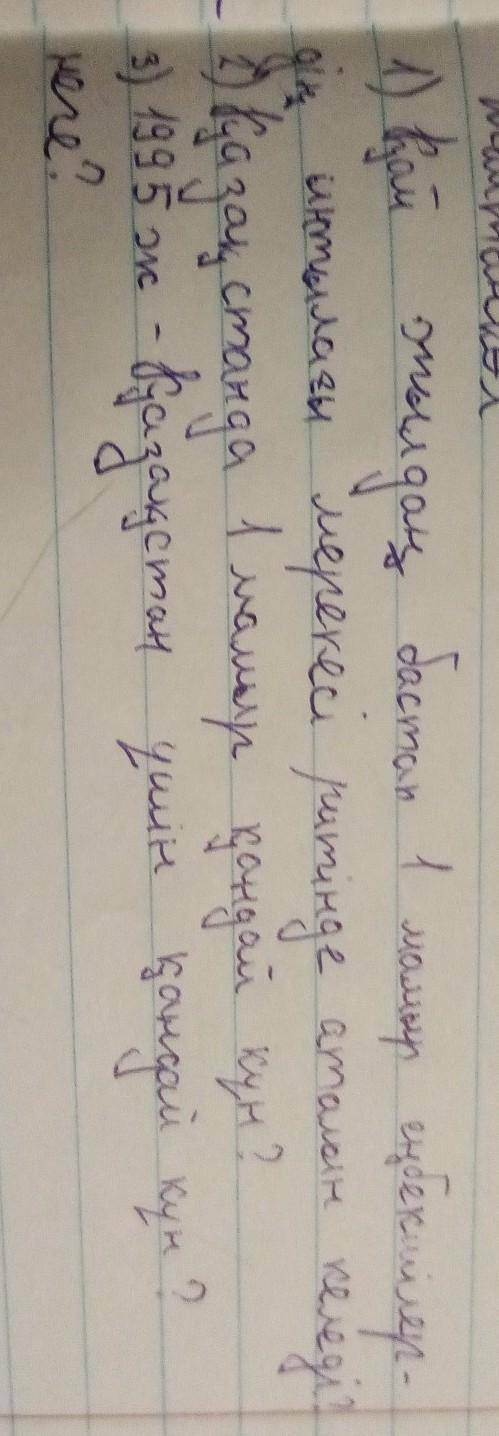 1) Қай жылдан бастап 1 мамыр еңбекшілер-
дің ынтымағы мерекесі ретінде аталып келеді?
2) Қазақстанда 1 мамыр қандай күн?
3) 1995 ж - Қазақстан үшін қандай күн?
неге?